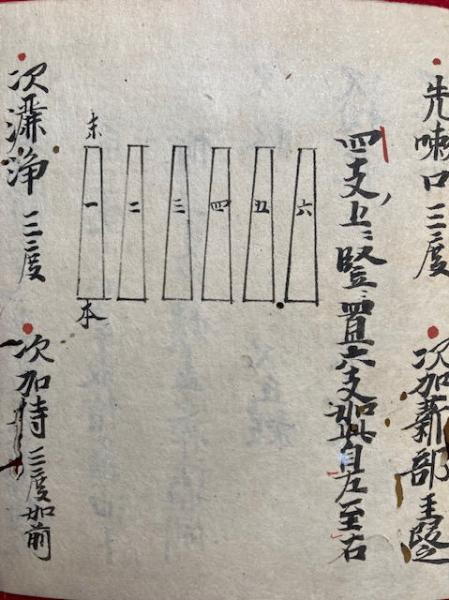 先嗽口三度 次加薪部主段
四支ノ上ニ竪ニ置六支如此自左至右
六
五
四
三
二
末
一
本
次灑浄三度 次加持三度如前